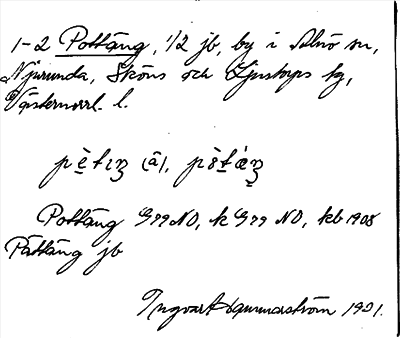 1-2 Pottäng, 1/2 jb, by i Alnö sn,
Njurunda, Sköns och Ljustorps tg,
Västernorrl. l.
pètıŋ (â), pòtæŋ
Pottäng G99 NO, k G99 NO, kb 1908
Pättäng jb
Ingvart Gunnarström 1921.